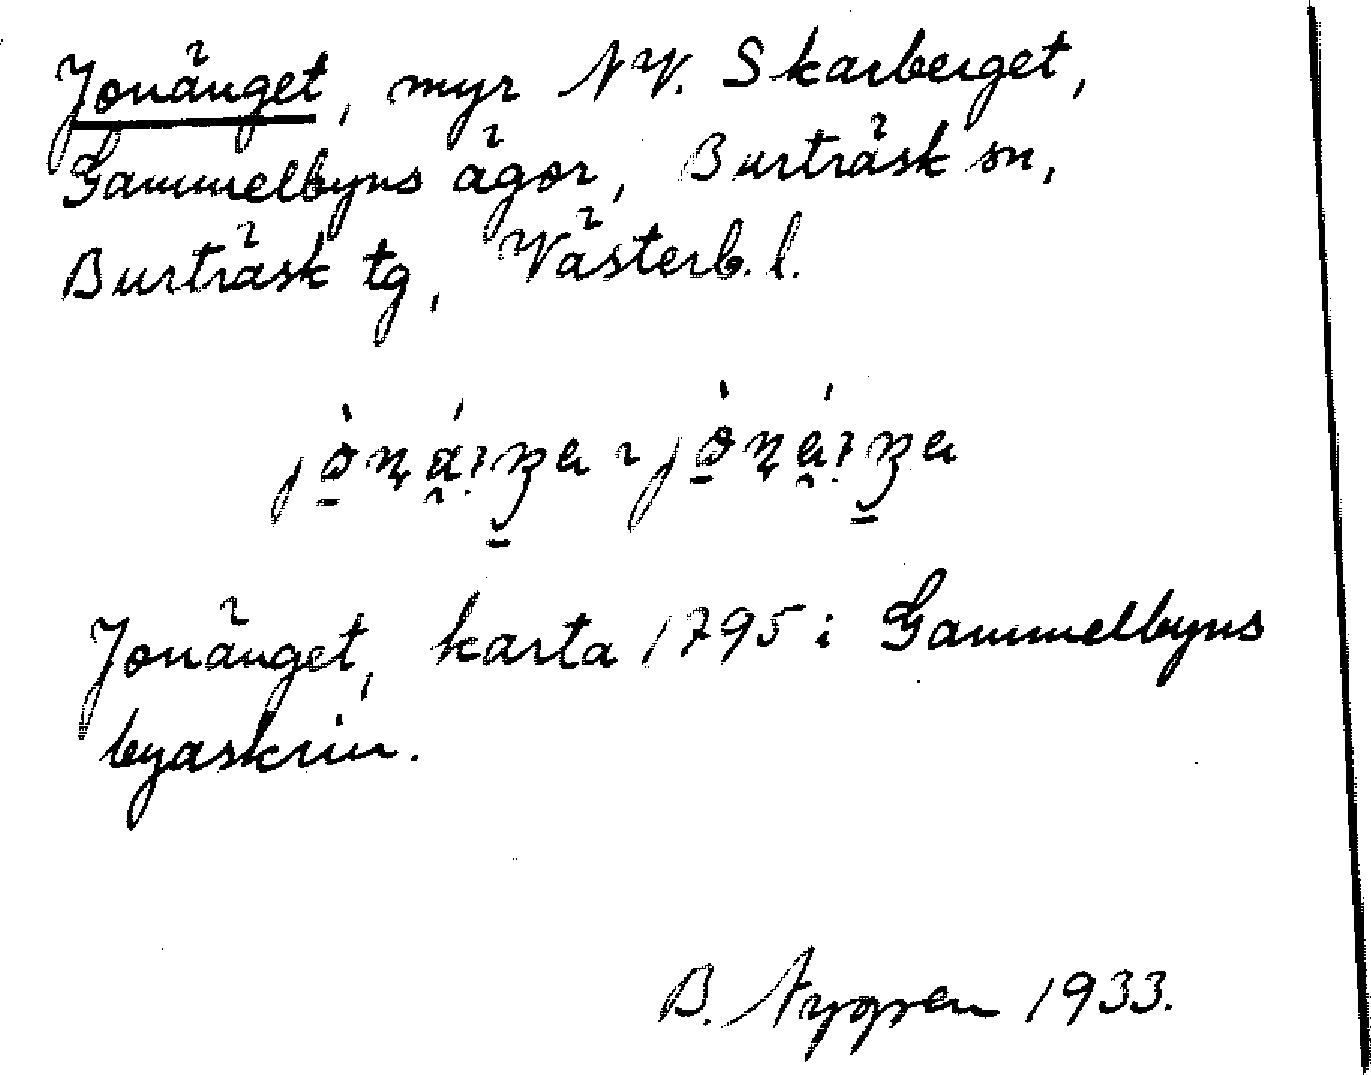 Jonänget, myr NV. Skarberget,
Gammelbyns ägor, Burträsk sn,
Burträsk tg, Västerb. l.
Jonänget, karta 1795 i Gammelbyns
byaskrin.
B. Nygren 1933.